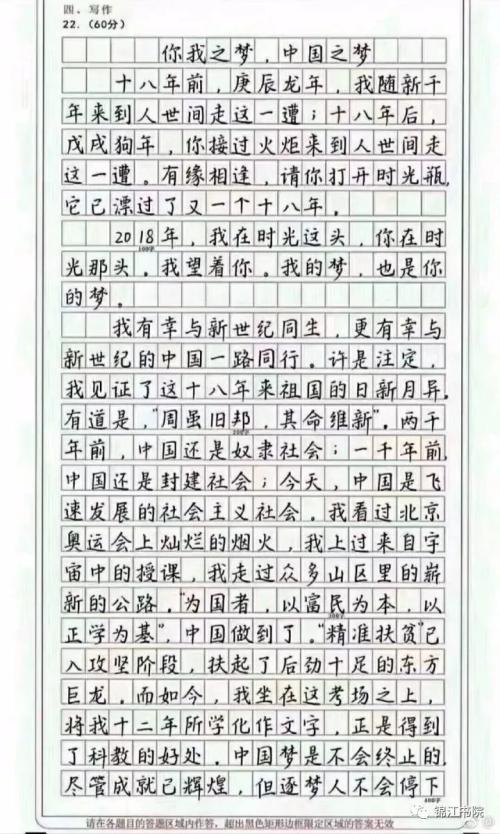 四、写作
22.(60分)
你我之梦,中国之梦
十八年前,庚辰龙年,我随新千
年来到人世间走这一遭;十八年后,
戊戌狗年,你接过火炬来到人世间走
这一遭。有缘相逢,请你打开时光瓶,
它已漂过了又一个十八年。
2018年,我在时光这头,你在时
100字
光那头。我望着你。我的梦,也是你
的梦。
我有幸与新世纪同生,更有幸与
新世纪的中国一路同行。许是注定,
我见证了这十八年来祖国的日新月异。
有道是,“周虽旧邦,其命维新”。两千
200字
年前,中国还是奴隶社会;一千年前,
中国还是封建社会;今天,中国是飞
速发展的社会主义社会。我看过北京
奥运会上灿烂的烟火,我上过来自宇
宙中的授课,我走过众多山区里的崭
新的公路。“为国者,以富民为本,以
300字
正学为基”,中国做到了。“精准扶贫”已
入攻坚阶段,扶起了后劲十足的东方
巨龙。而如今,我坐在这考场之上,
将我十二年所学化作文字,正是得到
了科教的好处。中国梦是不会终止的。
尽管成就已辉煌,但逐梦人不会停下
400字
请在各题目的答题区域内作答,超出黑色矩形边框限定区域的答案无效
锦江书院